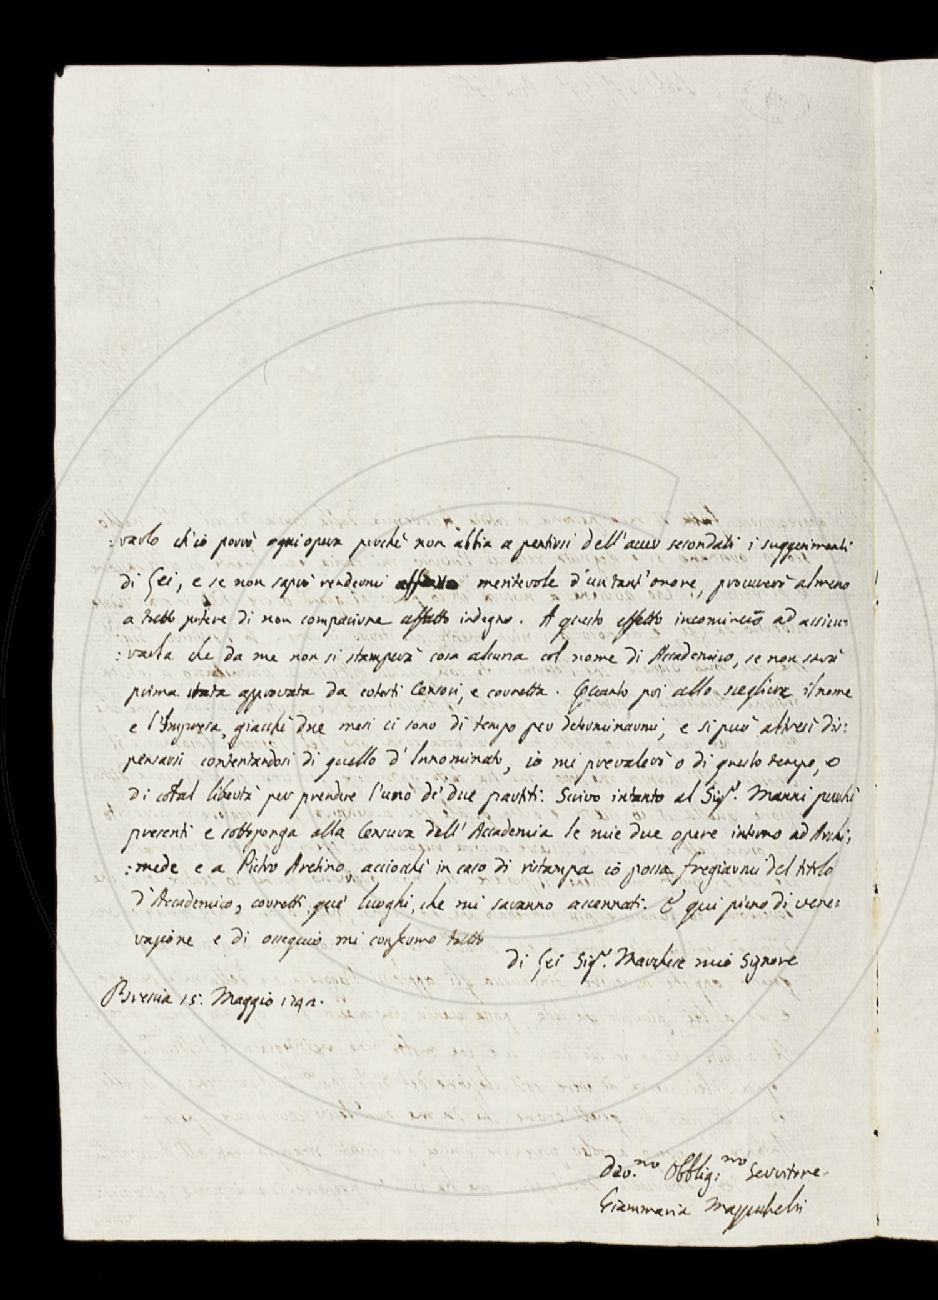 :rarlo ch'io porrò ogni opera perchè non abbia a pentirsi dell'aver secondati i suggerimenti
di Lei, e se non saprò rendermi meritevole d'un tant'onore, procurerò almeno
a tutto potere di non comparirne affatto indegno. A questo effetto incomincio ad assicu:
:rarla che da me non si stamperà cosa alcuna col nome di Accademico, se non sarà
prima stata approvata da cotesti Censori, e corretta. Quanto poi allo scegliere il nome
e l'Impresa, giacchè due mesi ci sono di tempo per determinarmi, e si può altresì dis:
pensarsi contentandosi di quello d'Innominato, io mi prevalerò o di questo tempo, o
di cotal libertà per prendere l'uno de' due partiti. Scrivo intanto al Sig.r Manni perchè
presenti e sottoponga alla Censura dell'Accademia le mie due opere intorno ad Archi:
:mede e a Pietro Aretino, acciocchè in caso di ristampa io possa fregiarmi del titolo
d'Accademico, corretti que' luoghi, che mi saranno accennati. E qui pieno di vene:
razione e di ossequio mi confermo tutto
di Lei Sig.r Marchese mio Signore
Brescia 15. Maggio 1742.
Dev.mo Obblig.mo Servitore
Giammaria Mazzuchelli